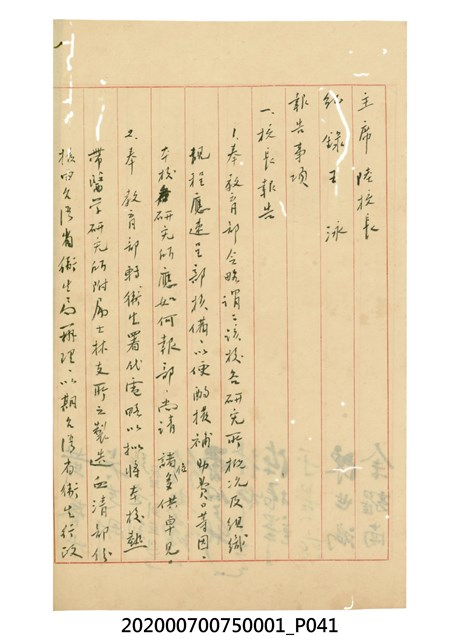 主席 陸校長
紀錄 王 泳
報告事項
一、校長報告
1.奉教育部令略謂:「該校各研究所概况及組織
規程應速呈部核備,以便酌撥補助費」等因,
本校研究所應如何報部,尚請 諸位多供卓見。
2.奉 教育部轉衛生署代電略以擬將本校熱
帶醫学研究所附属士林支所之製造血清部份
撥由台湾省衛生局辦理,以期台湾省衛生行政
202000700750001_P041